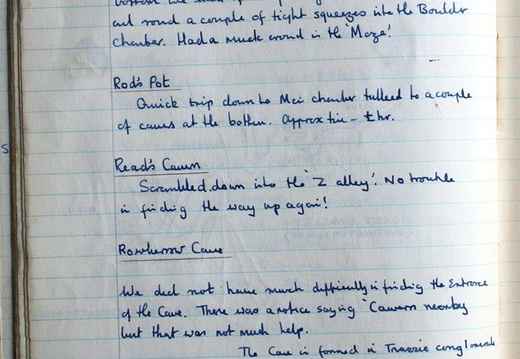 out round a couple of tight squeezes into the Boulder
chamber. Had a muck around in the 'Maze'!
Rod's Pot
Quick trip down to Main chamber talked to a couple
of cavers at the bottom. Approx time - ½ hr.
Read's Cavern
Scrambled down into the 'Z alley'. No trouble
in finding the way up again!
Rowberrow Cave
We did not have much difficulty in finding the Entrance
of the Cave. There was a notice saying 'Cavern nearby
but that was not much help.
The Cave is formed in Triassic conglomerate